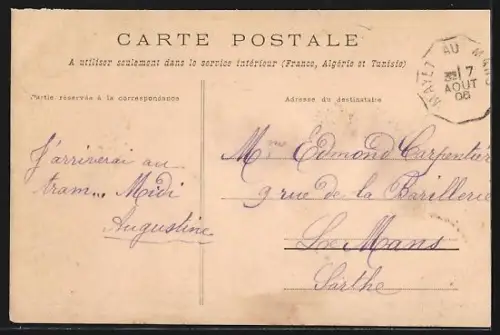 CARTE POSTALE
A utiliser seulement dans le service intérieur (France, Algérie et Tunisie)
MAYET AU MANS
7
AOUT
06
Partie réservée à la correspondance
Adresse du destinataire
J'arriverai au
tram... Midi
Augustine
M. Edmond Carpentier
9 rue de la Barillerie
Le Mans
Sarthe